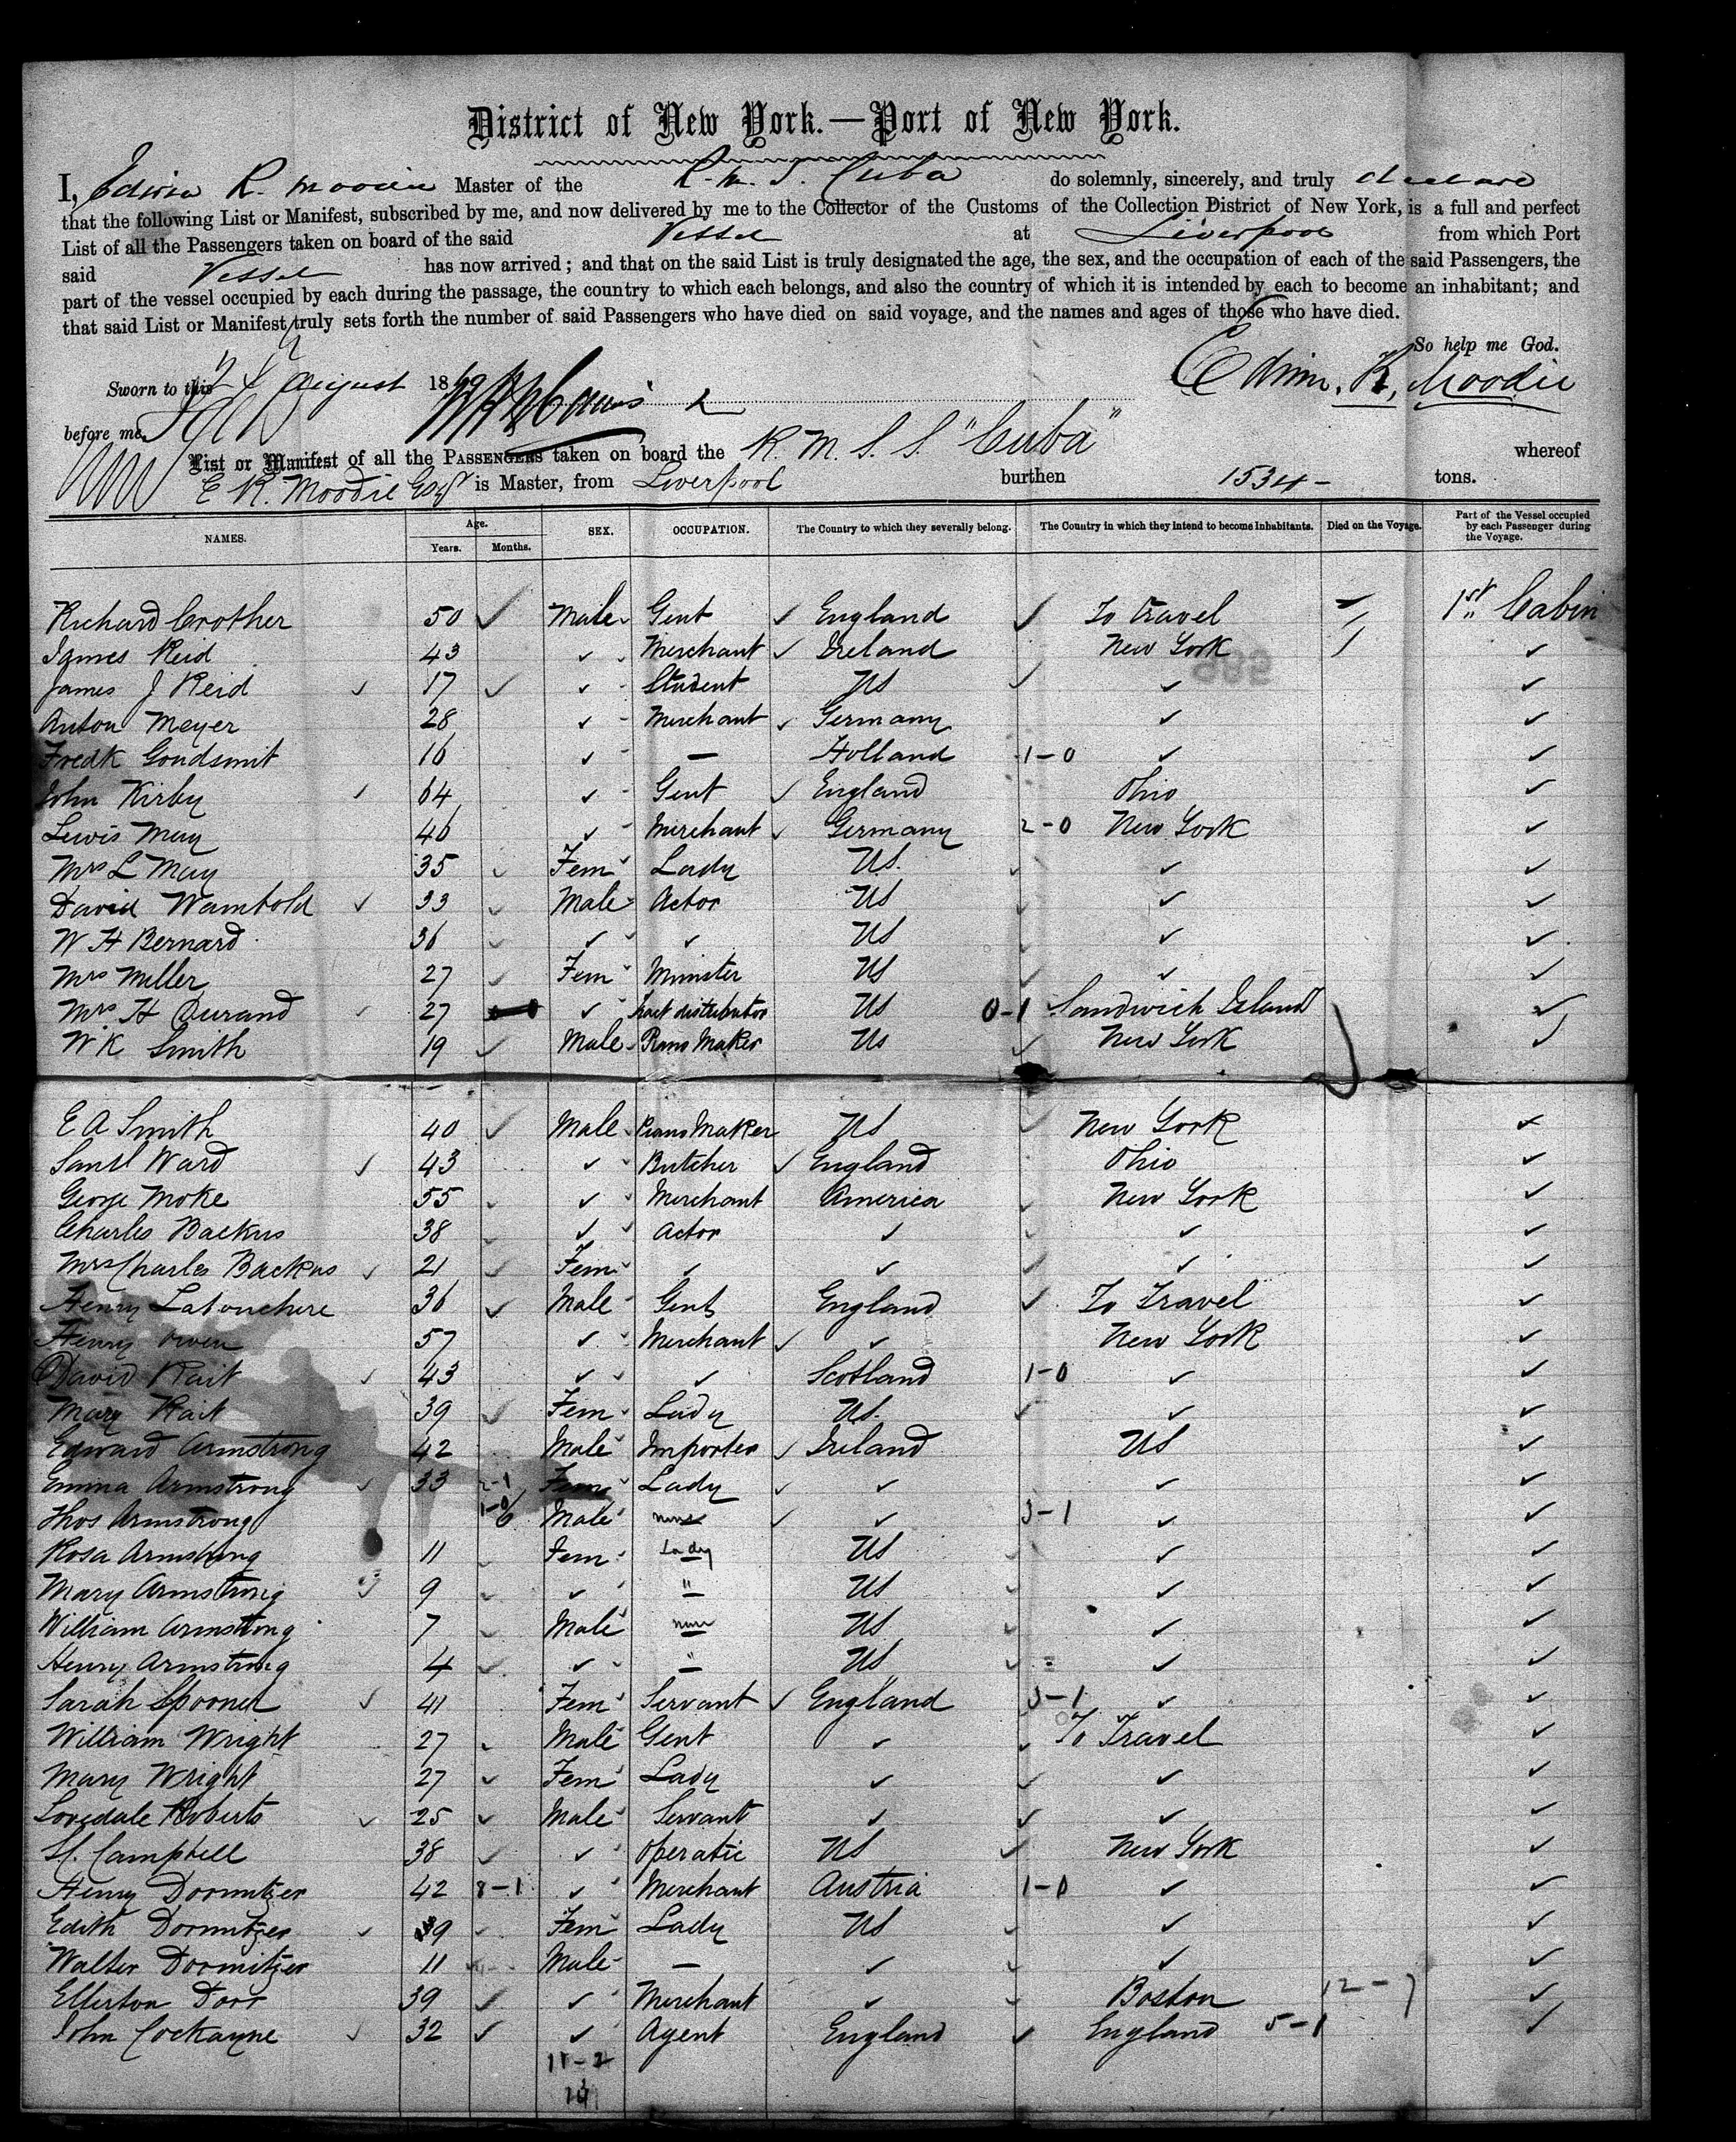 District of New York.—Port of New York.
I, Edwin R. Moodie Master of the R. M. S. Cuba do solemnly, sincerely, and truly declare
that the following List or Manifest, subscribed by me, and now delivered by me to the Collector of the Customs of the Collection District of New York, is a full and perfect
List of all the Passengers taken on board of the said Vessel at Liverpool from which Port
said Vessel has now arrived; and that on the said List is truly designated the age, the sex, and the occupation of each of the said Passengers, the
part of the vessel occupied by each during the passage, the country to which each belongs, and also the country of which it is intended by each to become an inhabitant; and
that said List or Manifest truly sets forth the number of said Passengers who have died on said voyage, and the names and ages of those who have died.
So help me God.
Sworn to this 24 August 1869 Edwin. R. Moodie
before me,
List or Manifest of all the PASSENGERS taken on board the R. M. S. S. "Cuba" whereof
E R. Moodie Esqr is Master, from Liverpool burthen 1534 - tons.
NAMES. Age. Years. Months. SEX. OCCUPATION. The Country to which they severally belong. The Country in which they intend to become Inhabitants. Died on the Voyage. Part of the Vessel occupied by each Passenger during the Voyage.
Richard Crother 50 ✓ Male Gent ✓ England ✓ To travel 1st Cabin
James Reid 43 ✓ Merchant ✓ Ireland New York ✓
James J Reid ✓ 17 ✓ ✓ Student US ✓ ✓ ✓
Anton Meyer 28 ✓ Merchant ✓ Germany ✓ ✓
Fredk Goudsmit 16 ✓ — Holland 1-0 ✓ ✓
John Kirby ✓ 64 ✓ Gent ✓ England Ohio ✓
Lewis May 46 ✓ Merchant ✓ Germany 2-0 New York ✓
Mrs L May 35 ✓ Fem Lady US. ✓ ✓ ✓
David Wambold ✓ 33 ✓ Male Actor US ✓ ✓ ✓
W H Bernard 36 ✓ ✓ ✓ US ✓ ✓ ✓
Mrs Miller 27 ✓ Fem Minister US ✓ ✓ ✓
Mrs H Durand ✓ 27 ✓ tract distributor US 0-1 Sandwich Island ✓
W K Smith 19 ✓ Male Piano Maker US ✓ New York ✓
E A Smith 40 ✓ Male Piano Maker US ✓ New York ✓
Saml Ward ✓ 43 ✓ Butcher ✓ England Ohio ✓
George Moke 55 ✓ ✓ Merchant America ✓ New York ✓
Charles Backus 38 ✓ ✓ Actor ✓ ✓ ✓ ✓
Mrs Charles Backus ✓ 21 ✓ Fem ✓ ✓ ✓ ✓ ✓
Henry Labouchere 36 ✓ Male Gent England ✓ To Travel ✓
Henry Owen 57 ✓ Merchant ✓ ✓ New York ✓
David Rait ✓ 43 ✓ ✓ Scotland 1-0 ✓ ✓
Mary Rait 39 ✓ Fem Lady US. ✓ ✓ ✓
Edward Armstrong 42 Male Importer ✓ Ireland US ✓
Emma Armstrong ✓ 33 2-1 Fem Lady ✓ ✓ ✓ ✓
Thos Armstrong 1-0 6 Male none ✓ ✓ 3-1 ✓ ✓
Rosa Armstrong 11 ✓ Fem Lady US ✓ ✓ ✓
Mary Armstrong ✓ 9 ✓ ✓ " US ✓ ✓ ✓
William Armstrong 7 ✓ Male none US ✓ ✓ ✓
Henry Armstrong 4 ✓ ✓ " US ✓ ✓ ✓
Sarah Spooner ✓ 41 Fem Servant ✓ England 3-1 ✓ ✓
William Wright 27 ✓ Male Gent ✓ ✓ To Travel ✓
Mary Wright 27 ✓ Fem Lady ✓ ✓ ✓ ✓
Lovedale Roberts ✓ 25 ✓ Male Servant ✓ ✓ ✓ ✓
S. C. Campbell 38 ✓ ✓ Operatic US ✓ New York ✓
Henry Dormitzer 42 8-1 ✓ Merchant Austria 1-0 ✓ ✓
Edith Dormitzer ✓ 39 ✓ Fem Lady US ✓ ✓ ✓
Walter Dormitzer 11 Male — ✓ ✓ ✓ ✓
Ellerton Dorr 39 ✓ ✓ Merchant ✓ ✓ Boston 12-7 ✓
John Cockayne ✓ 32 ✓ ✓ Agent England ✓ England 5-1 ✓
11-2